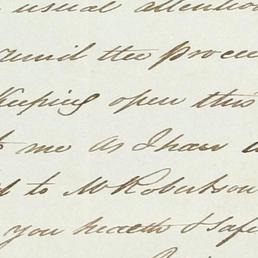 usual attention
until the procee
Keeping open this
to me as I have
to Mr Robertson
you health & safe